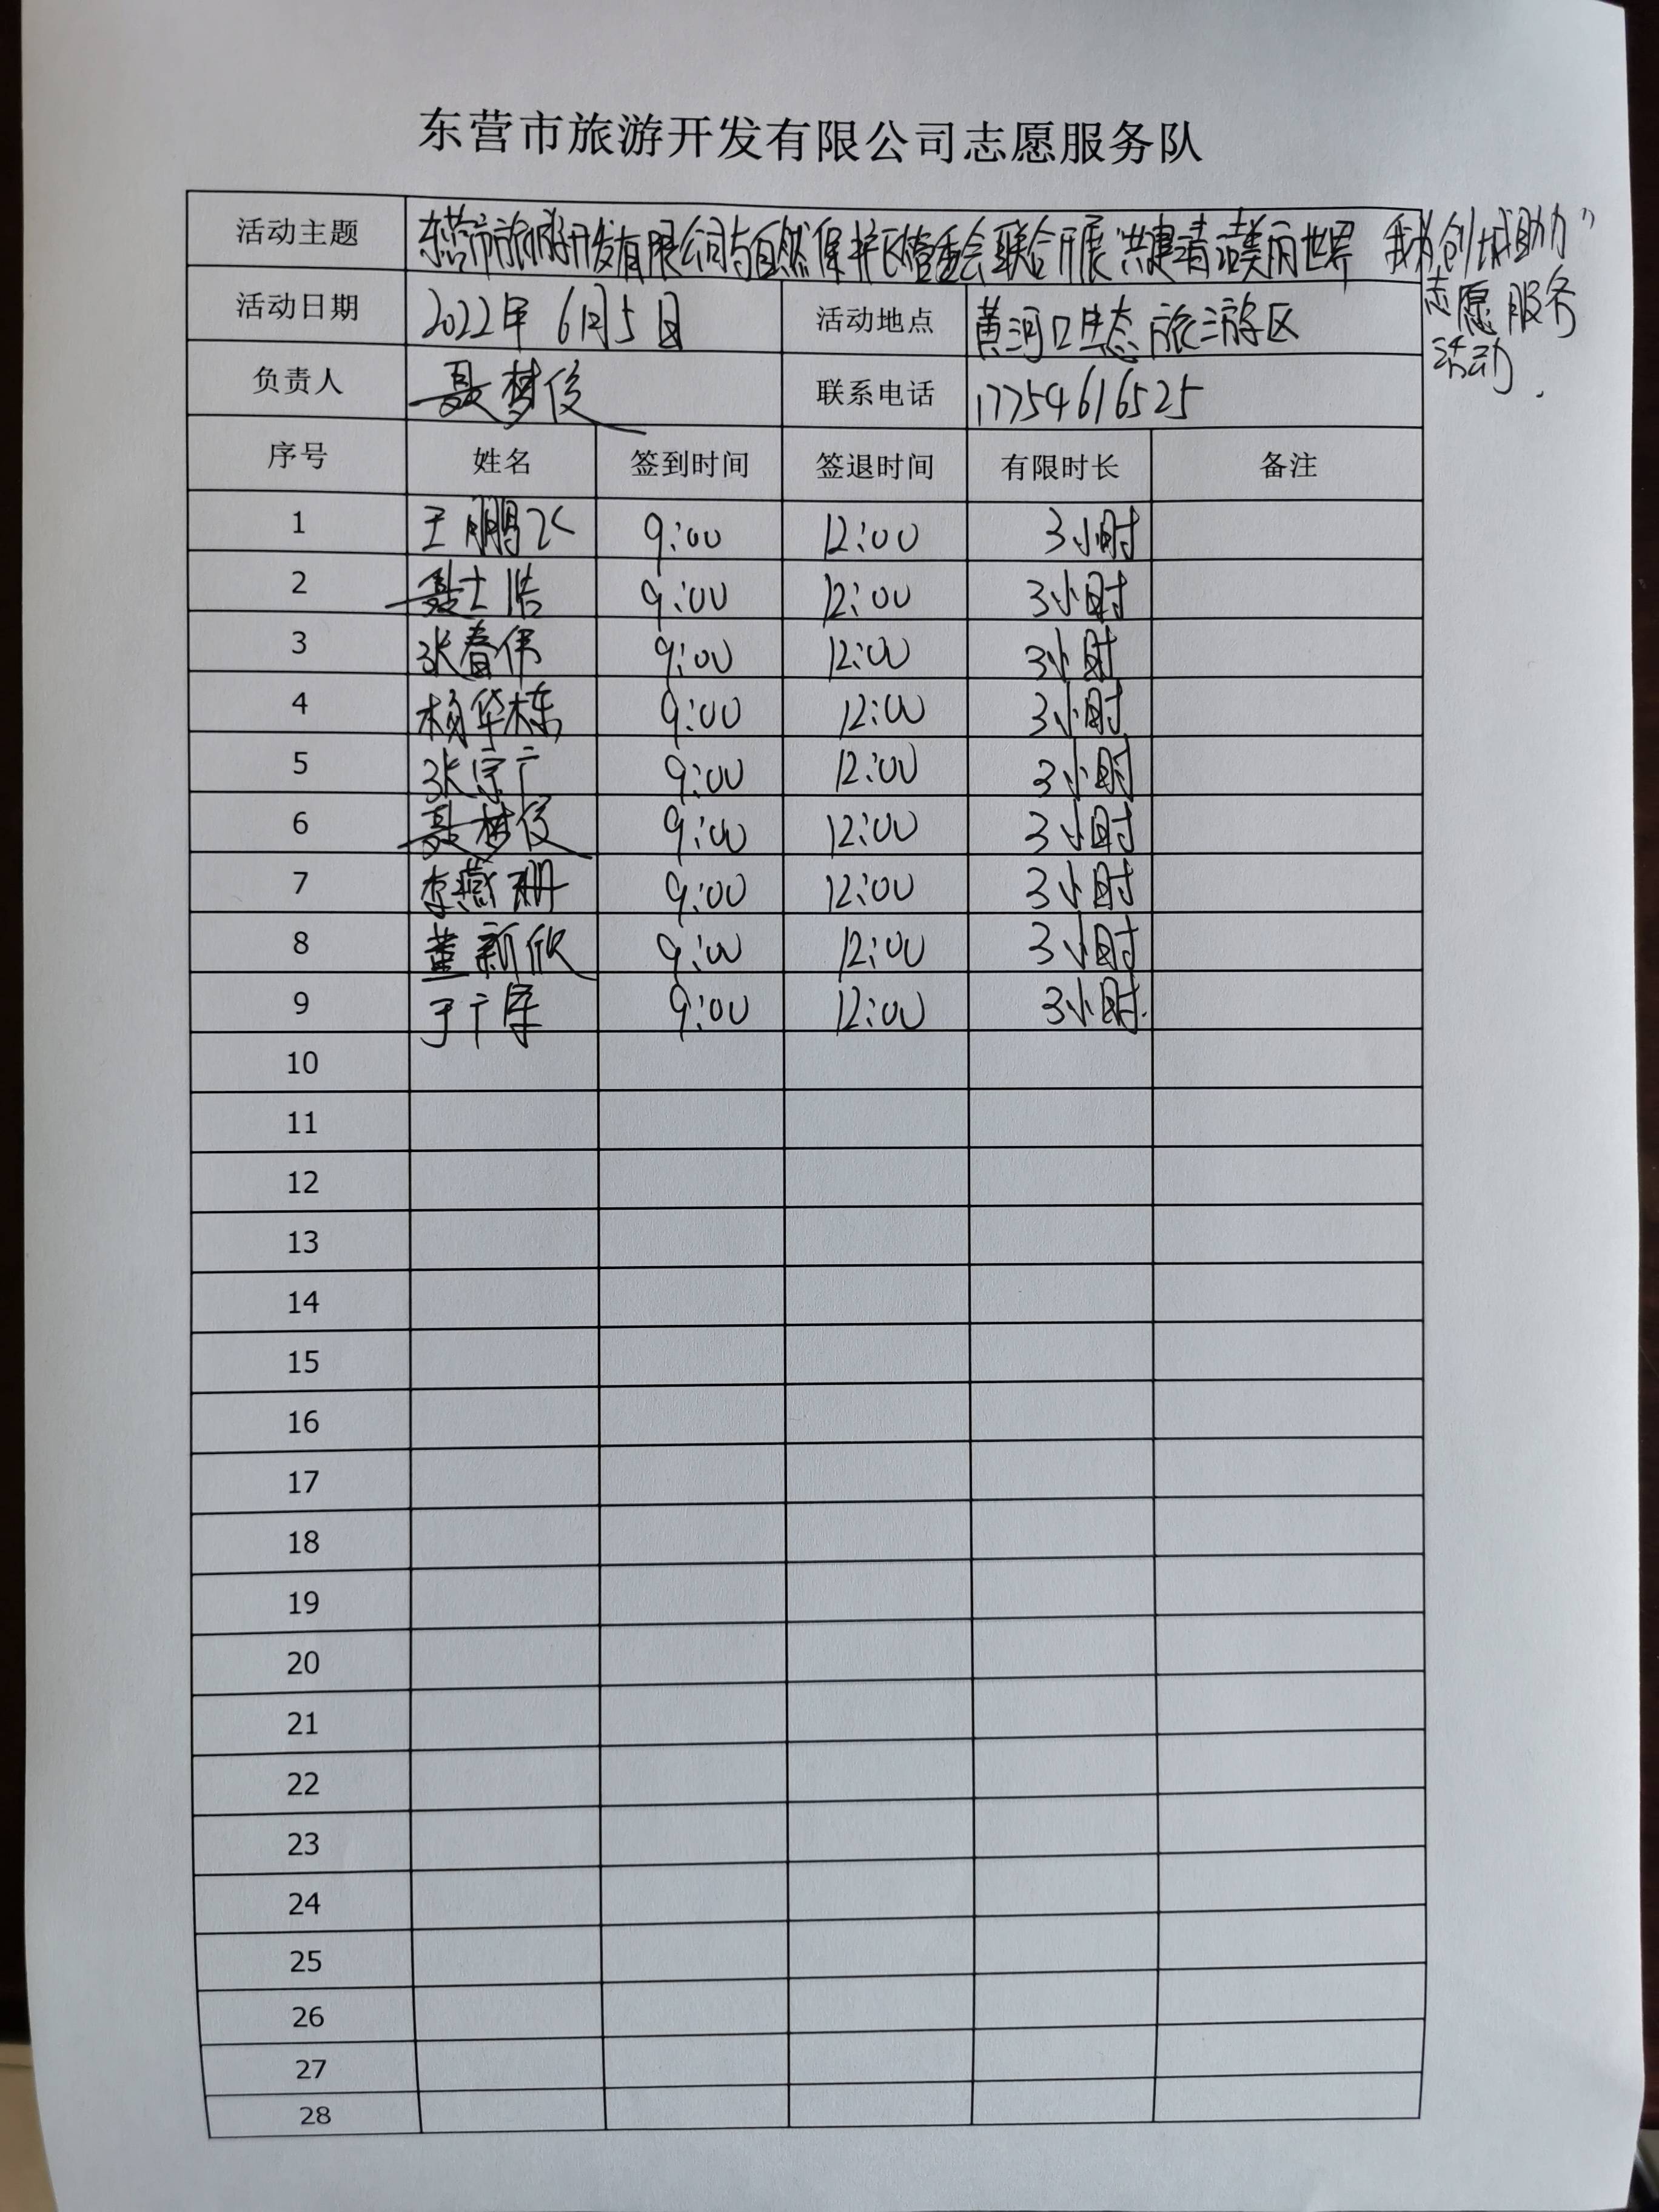 东营市旅游开发有限公司志愿服务队
活动主题 东营市旅游开发有限公司与自然保护区管委会联合开展“共建清洁美丽世界 我为创城助力”
志愿服务
活动.
活动日期 2022年6月5日 活动地点 黄河口生态旅游区
负责人 聂梦俊 联系电话 17754616525
序号 姓名 签到时间 签退时间 有限时长 备注
1 王鹏飞 9:00 12:00 3小时
2 聂士浩 9:00 12:00 3小时
3 张春伟 9:00 12:00 3小时
4 杨华栋 9:00 12:00 3小时
5 张宗广 9:00 12:00 3小时
6 聂梦俊 9:00 12:00 3小时
7 李燕珊 9:00 12:00 3小时
8 董新欣 9:00 12:00 3小时
9 于广 9:00 12:00 3小时.
10
11
12
13
14
15
16
17
18
19
20
21
22
23
24
25
26
27
28